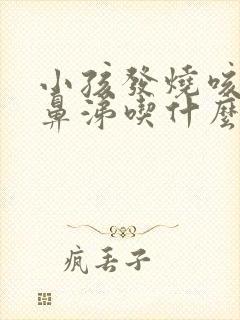 小孩發燒咳
鼻涕喫什麼
瘋丢子